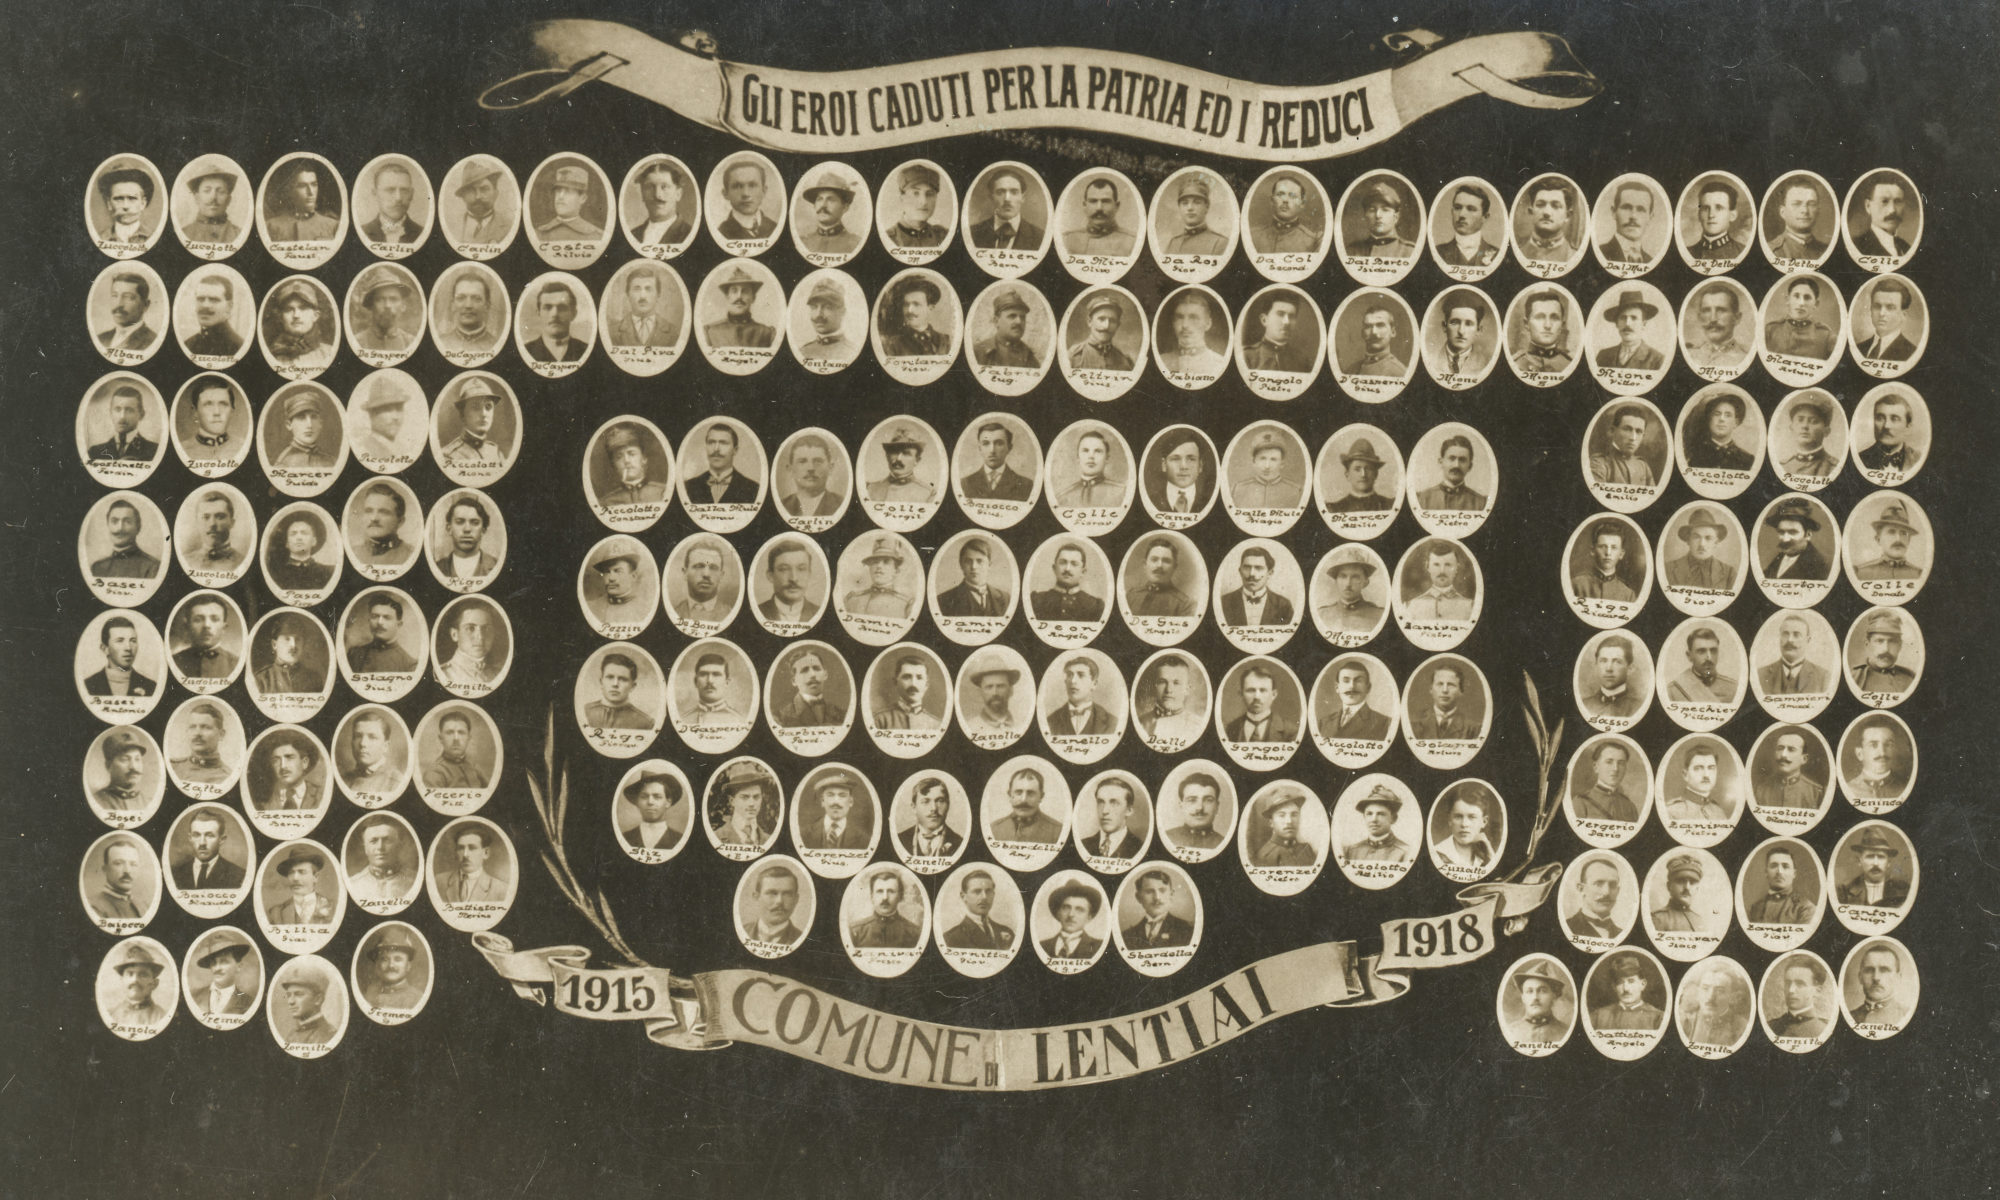 GLI EROI CADUTI PER LA PATRIA ED I REDUCI
Zuccolotto
Zucolotto
Castelan Faust.
Carlin
Carlin
Costa Silvio
Costa
Comel
Comel
Cavacece
Cibien Bern.
Da Min Olivo
Da Ros Giov.
Da Col Second.
Dal Berto Isidoro
Deon
Dallo
Dal Mat
De Dettor
De Dettor
Colle
Alban
Zucolotto
De Gasperi
De Gasperi
De Gasperi
De Gasperi
Dal Piva Gius.
Fontana Angelo
Fontana
Fontana Giov.
Fabris Eug.
Feltrin Gius.
Fabiano
Gongolo Pietro
D'Gasperin Gius
Mione
Mione
Mione Vittor.
Migni
Marcer Arturo
Colle
Agostinetto
Zucolotto
Marcer Guido
Piccolotto
Piccolotti
Piccolotto Constant.
Dalla Mule Fiorav.
Carlin
Colle Virgil.
Baiocco Gius.
Colle Fiorav.
Canal
Dalle Mule Biagio
Marcer Attilio
Scarton Pietro
Piccolotto Emilio
Piccolotto Enrico
Piccolotto M.
Colle
Basei Giov.
Zucolotto
Pasa
Pasa
Rigo
Pezzin
De Bona
Casanova
Damin Bruno
Damin Sante
Deon Angelo
De Gus Angelo
Fontana Fresco
Mione
Zanivan Pietro
Rigo Riccardo
Pasqualotto Giov.
Scarton Giov.
Colle Donato
Basei Antonio
Zucolotto
Solagno
Solagno Gius.
Zornitta
Rigo Fiorav.
D'Gasperin Giov.
Garbini Ferd.
Marcer Gius.
Zanolla
Zanello Ang.
Dallo
Gongolo Ambros.
Piccolotto Primo
Solagna Arturo
Sasso
Spechier Vittorio
Sampieri Amad.
Colle
Bosei
Zatta
Taemia Bern.
Tres
Vecerio Vitt.
Stiz
Luzzatto
Lorenzet Gius.
Zanella
Sbardella Ang.
Zanella
Tres
Lorenzet Pietro
Picolotto Attilio
Luzzatto Guido
Vergerio Dario
Zanivan Pietro
Zucolotto Manrico
Benincà
Baiocco
Baiocco
Billia Giac.
Zanella
Battiston Merino
Endrigeti
Zanivan Fresco
Zornitta Giov.
Zanella
Sbardella Bern.
Baiocco
Zanivan Isaco
Zanella Giov.
Canton Luigi
Zanola
Tremea
Zornitta
Tremea
Zanella
Battiston Angelo
Zornitta
Zornitta
Zanella
1915
COMUNE DI LENTIAI
1918